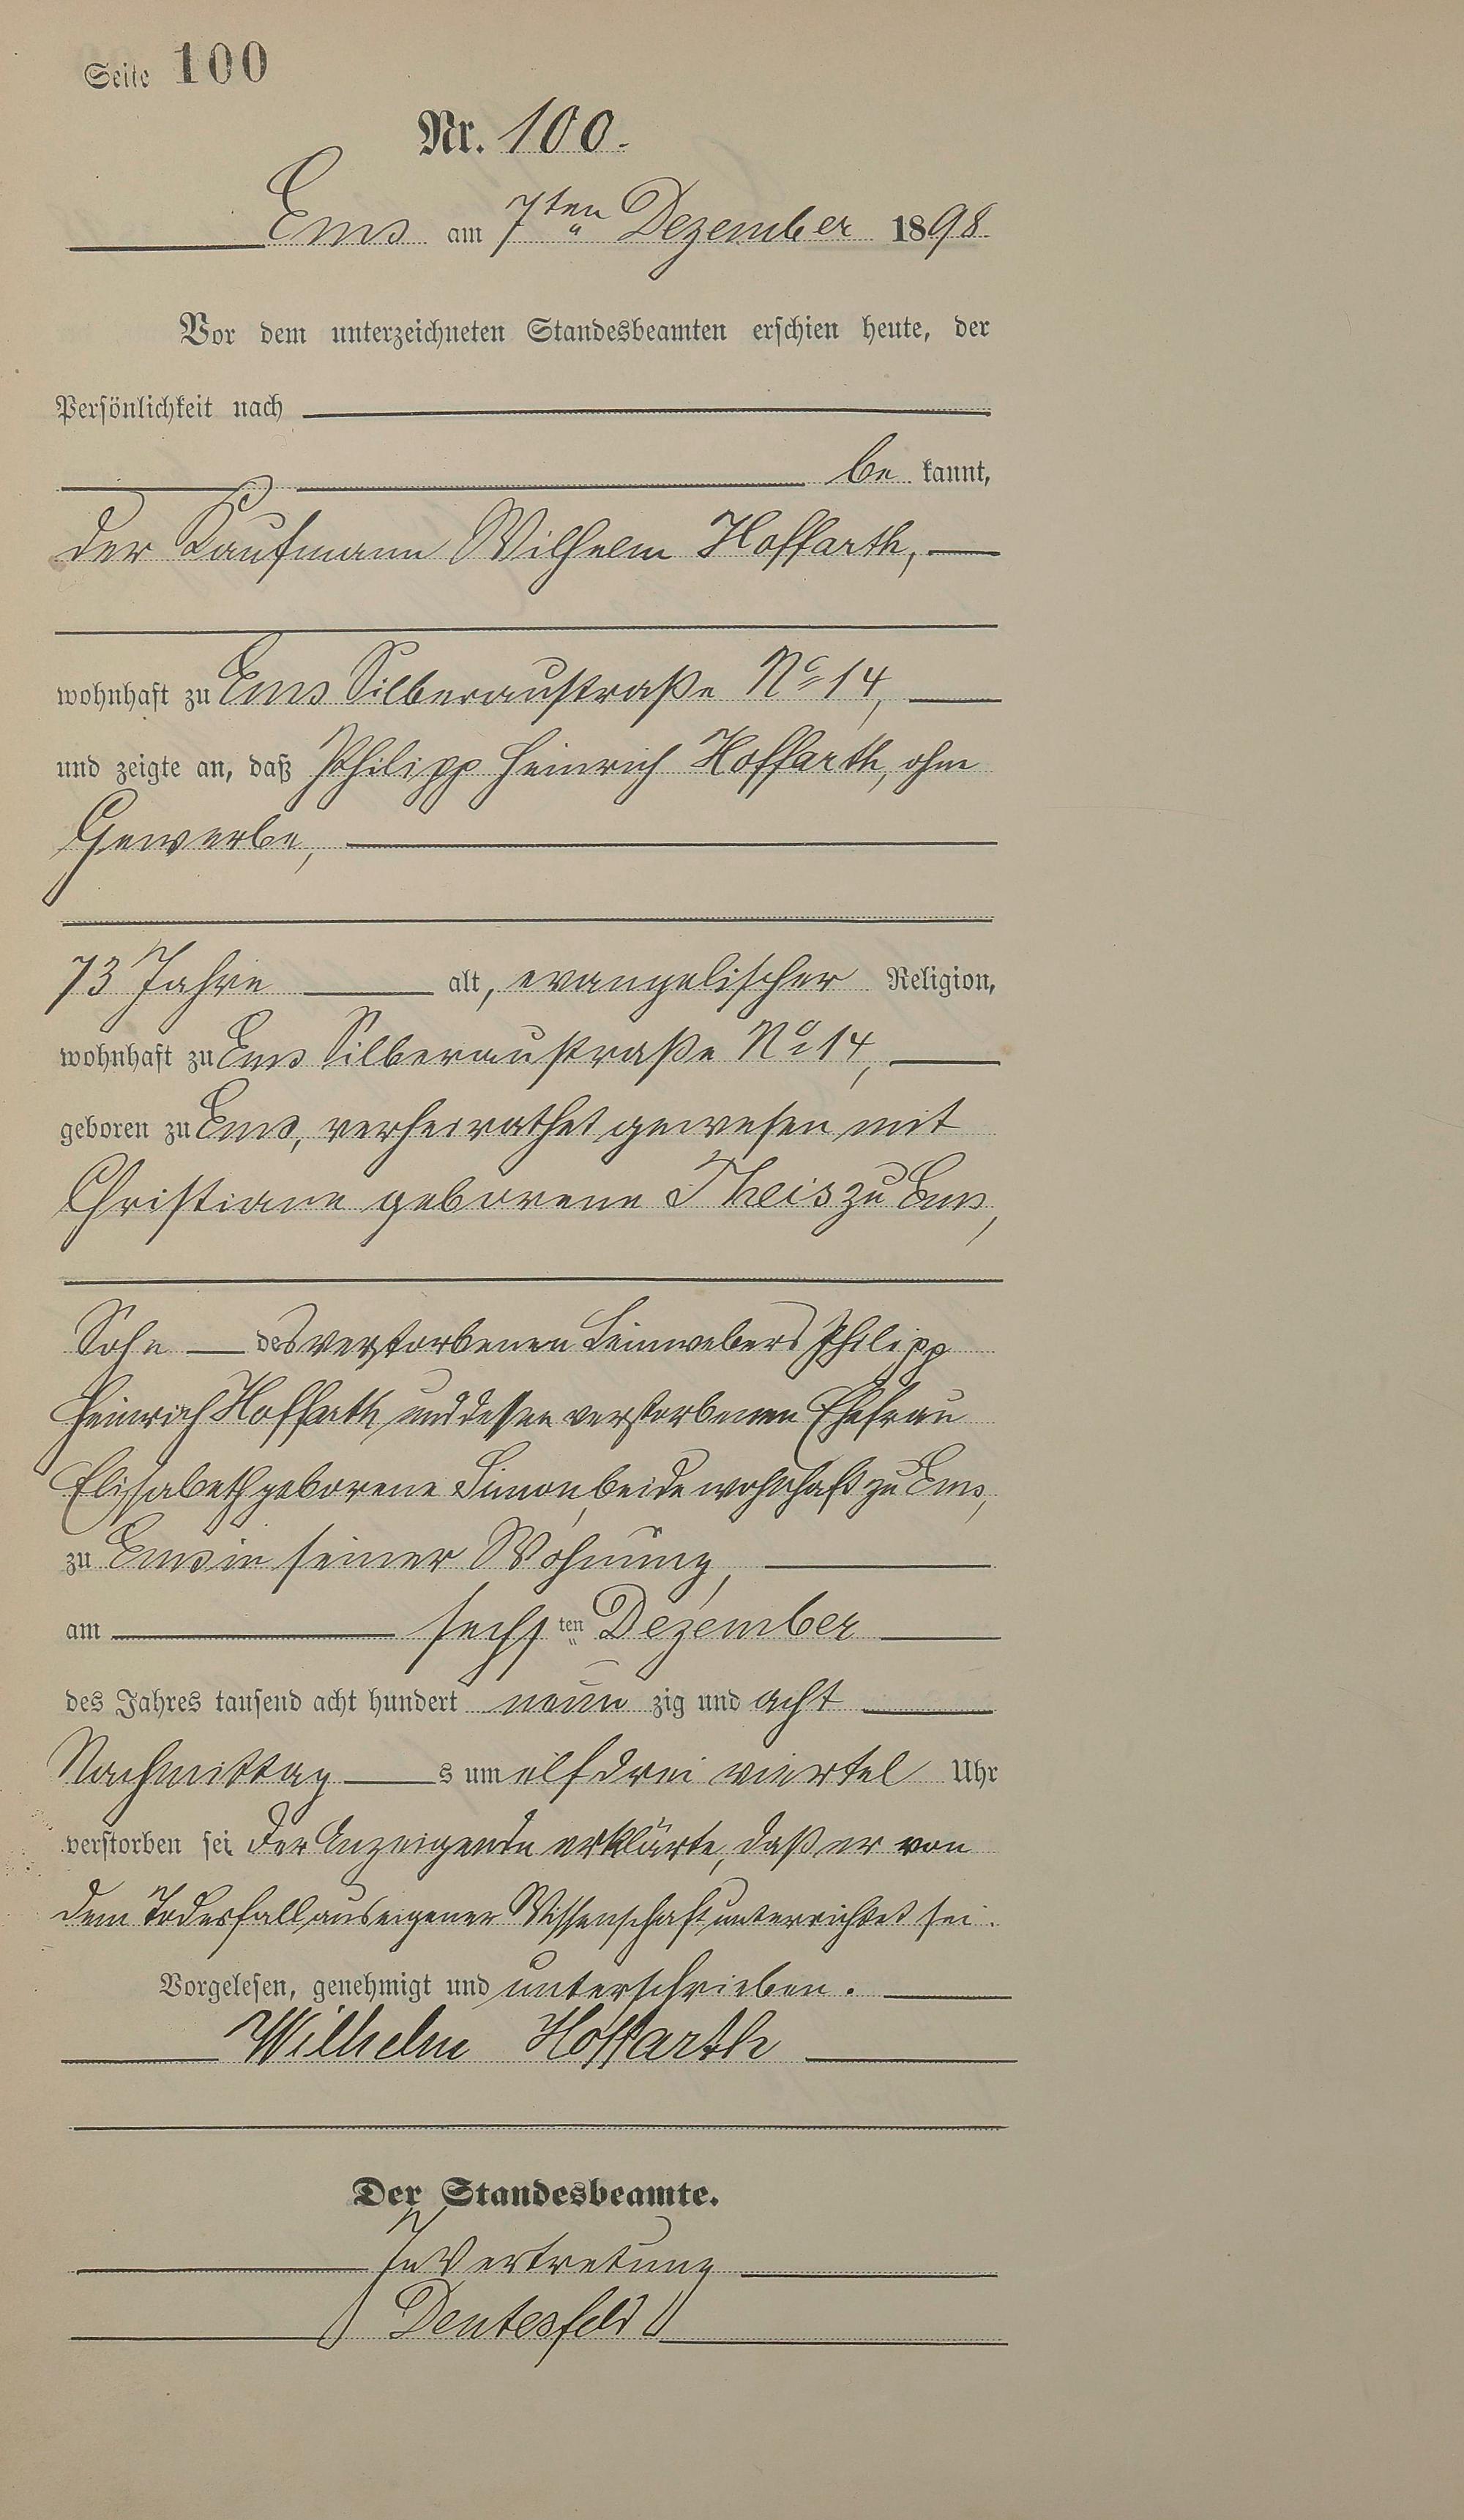 Seite 100
Nr. 100.
Ems am 7ten Dezember 1898.
Vor dem unterzeichneten Standesbeamten erschien heute, der
Persönlichkeit nach
be kannt,
der Kaufmann Wilhelm Hoffarth,
wohnhaft zu Ems Silberaustraße No 14,
und zeigte an, daß Philipp Heinrich Hoffarth, ohne
Gewerbe,
73 Jahre alt, evangelischer Religion,
wohnhaft zu Ems Silberaustraße No 14,
geboren zu Ems, verheirathet gewesen mit
Christiane geborene Theis zu Ems,
Sohn des verstorbenen Leinwebers Philipp
Heinrich Hoffarth und dessen verstorbenen Ehefrau
Elisabeth geborene Simon, beide wohnhaft zu Ems,
zu Ems in seiner Wohnung,
am sechsten Dezember
des Jahres tausend acht hundert neun zig und acht
Nachmittag s um elf drei viertel Uhr
verstorben sei. Der Anzeigende erklärte, daß er von
dem Todesfall aus eigener Wissenschaft unterrichtet sei.
Vorgelesen, genehmigt und unterschrieben.
Wilhelm Hoffarth
Der Standesbeamte.
In Vertretung